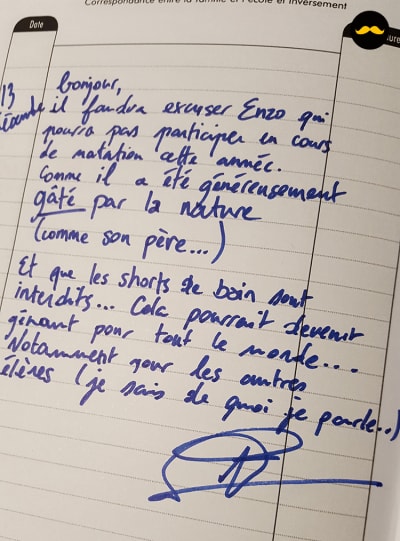 Correspondance entre la famille et l'école et inversement
Date
ure
13
Bonjour,
décembre il faudra excuser Enzo qui
pourra pas participer en cours
de natation cette année.
Comme il a été généreusement
gâté par la nature
(comme son père...)
Et que les shorts de bain sont
interdits... Cela pourrait devenir
gênant pour tout le monde...
Notamment pour les autres
élèves (je sais de quoi je parle..)